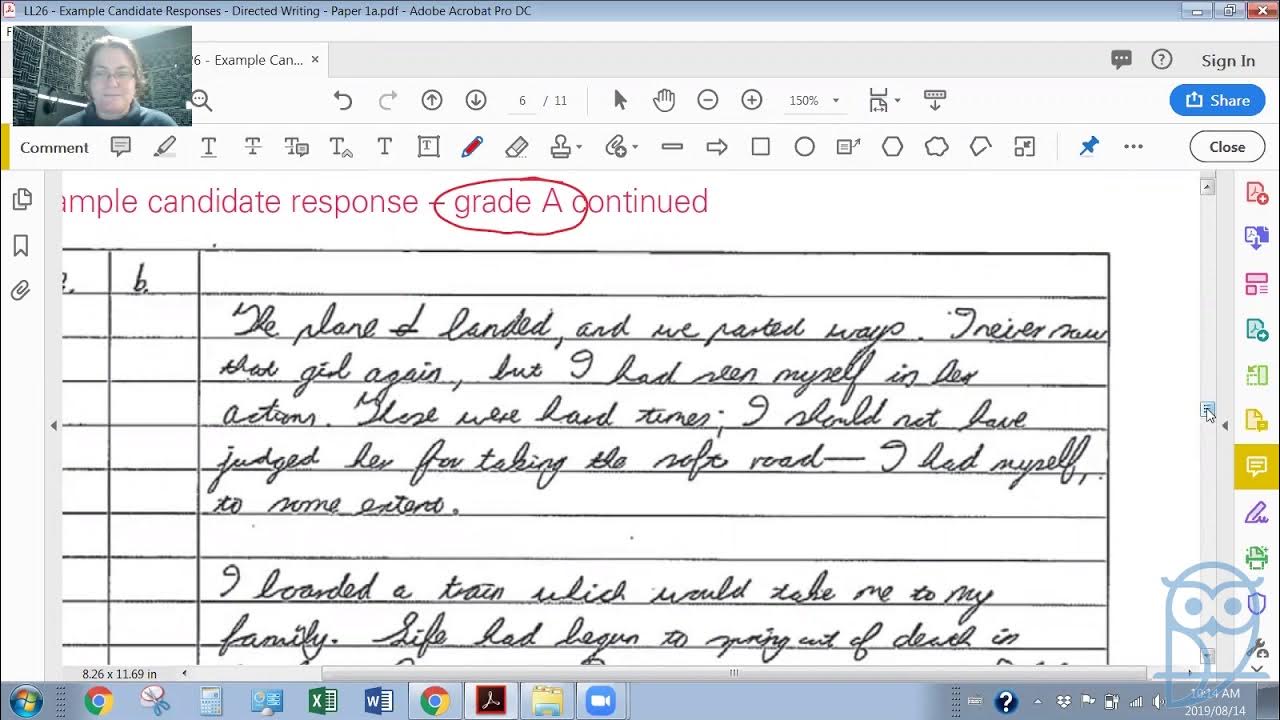 LL26 - Example Candidate Responses - Directed Writing - Paper 1a.pdf - Adobe Acrobat Pro DC
F
6 - Example Can... ×
6 / 11
150%
Sign In
Share
Comment
Close
ample candidate response – grade A continued
b.
The plane I landed, and we parted ways. I never saw
that girl again, but I had seen myself in her
actions. Those were hard times; I should not have
judged her for taking the soft road— I had myself,
to some extent.
I boarded a train which would take me to my
family. Life had begun to spring out of death in
8.26 x 11.69 in
10:14 AM
2019/08/14